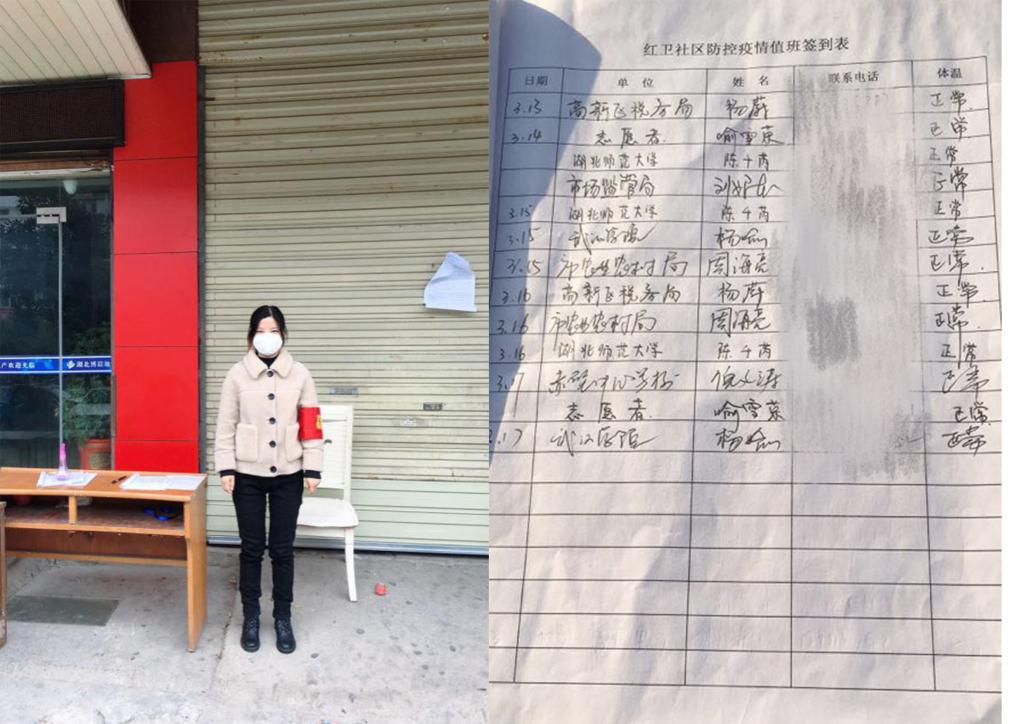 户欢迎光临
湖北博信地
红卫社区防控疫情值班签到表
日期 单位 姓名 联系电话 体温
3.13 高新区税务局 杨蔚 正常
3.14 志愿者 喻雪荣 正常
湖北师范大学 陈千芮 正常
市场监管局 正常
3.15 湖北师范大学 陈千芮 正常
3.15 武汉学院 正常
3.15 市农业农村局 周海亮 正常
3.16 高新区税务局 杨蔚 正常
3.16 市农业农村局 周海亮 正常
3.16 湖北师范大学 陈千芮 正常
3.17 正常
志愿者 喻雪荣 正常
3.17 武汉学院 正常